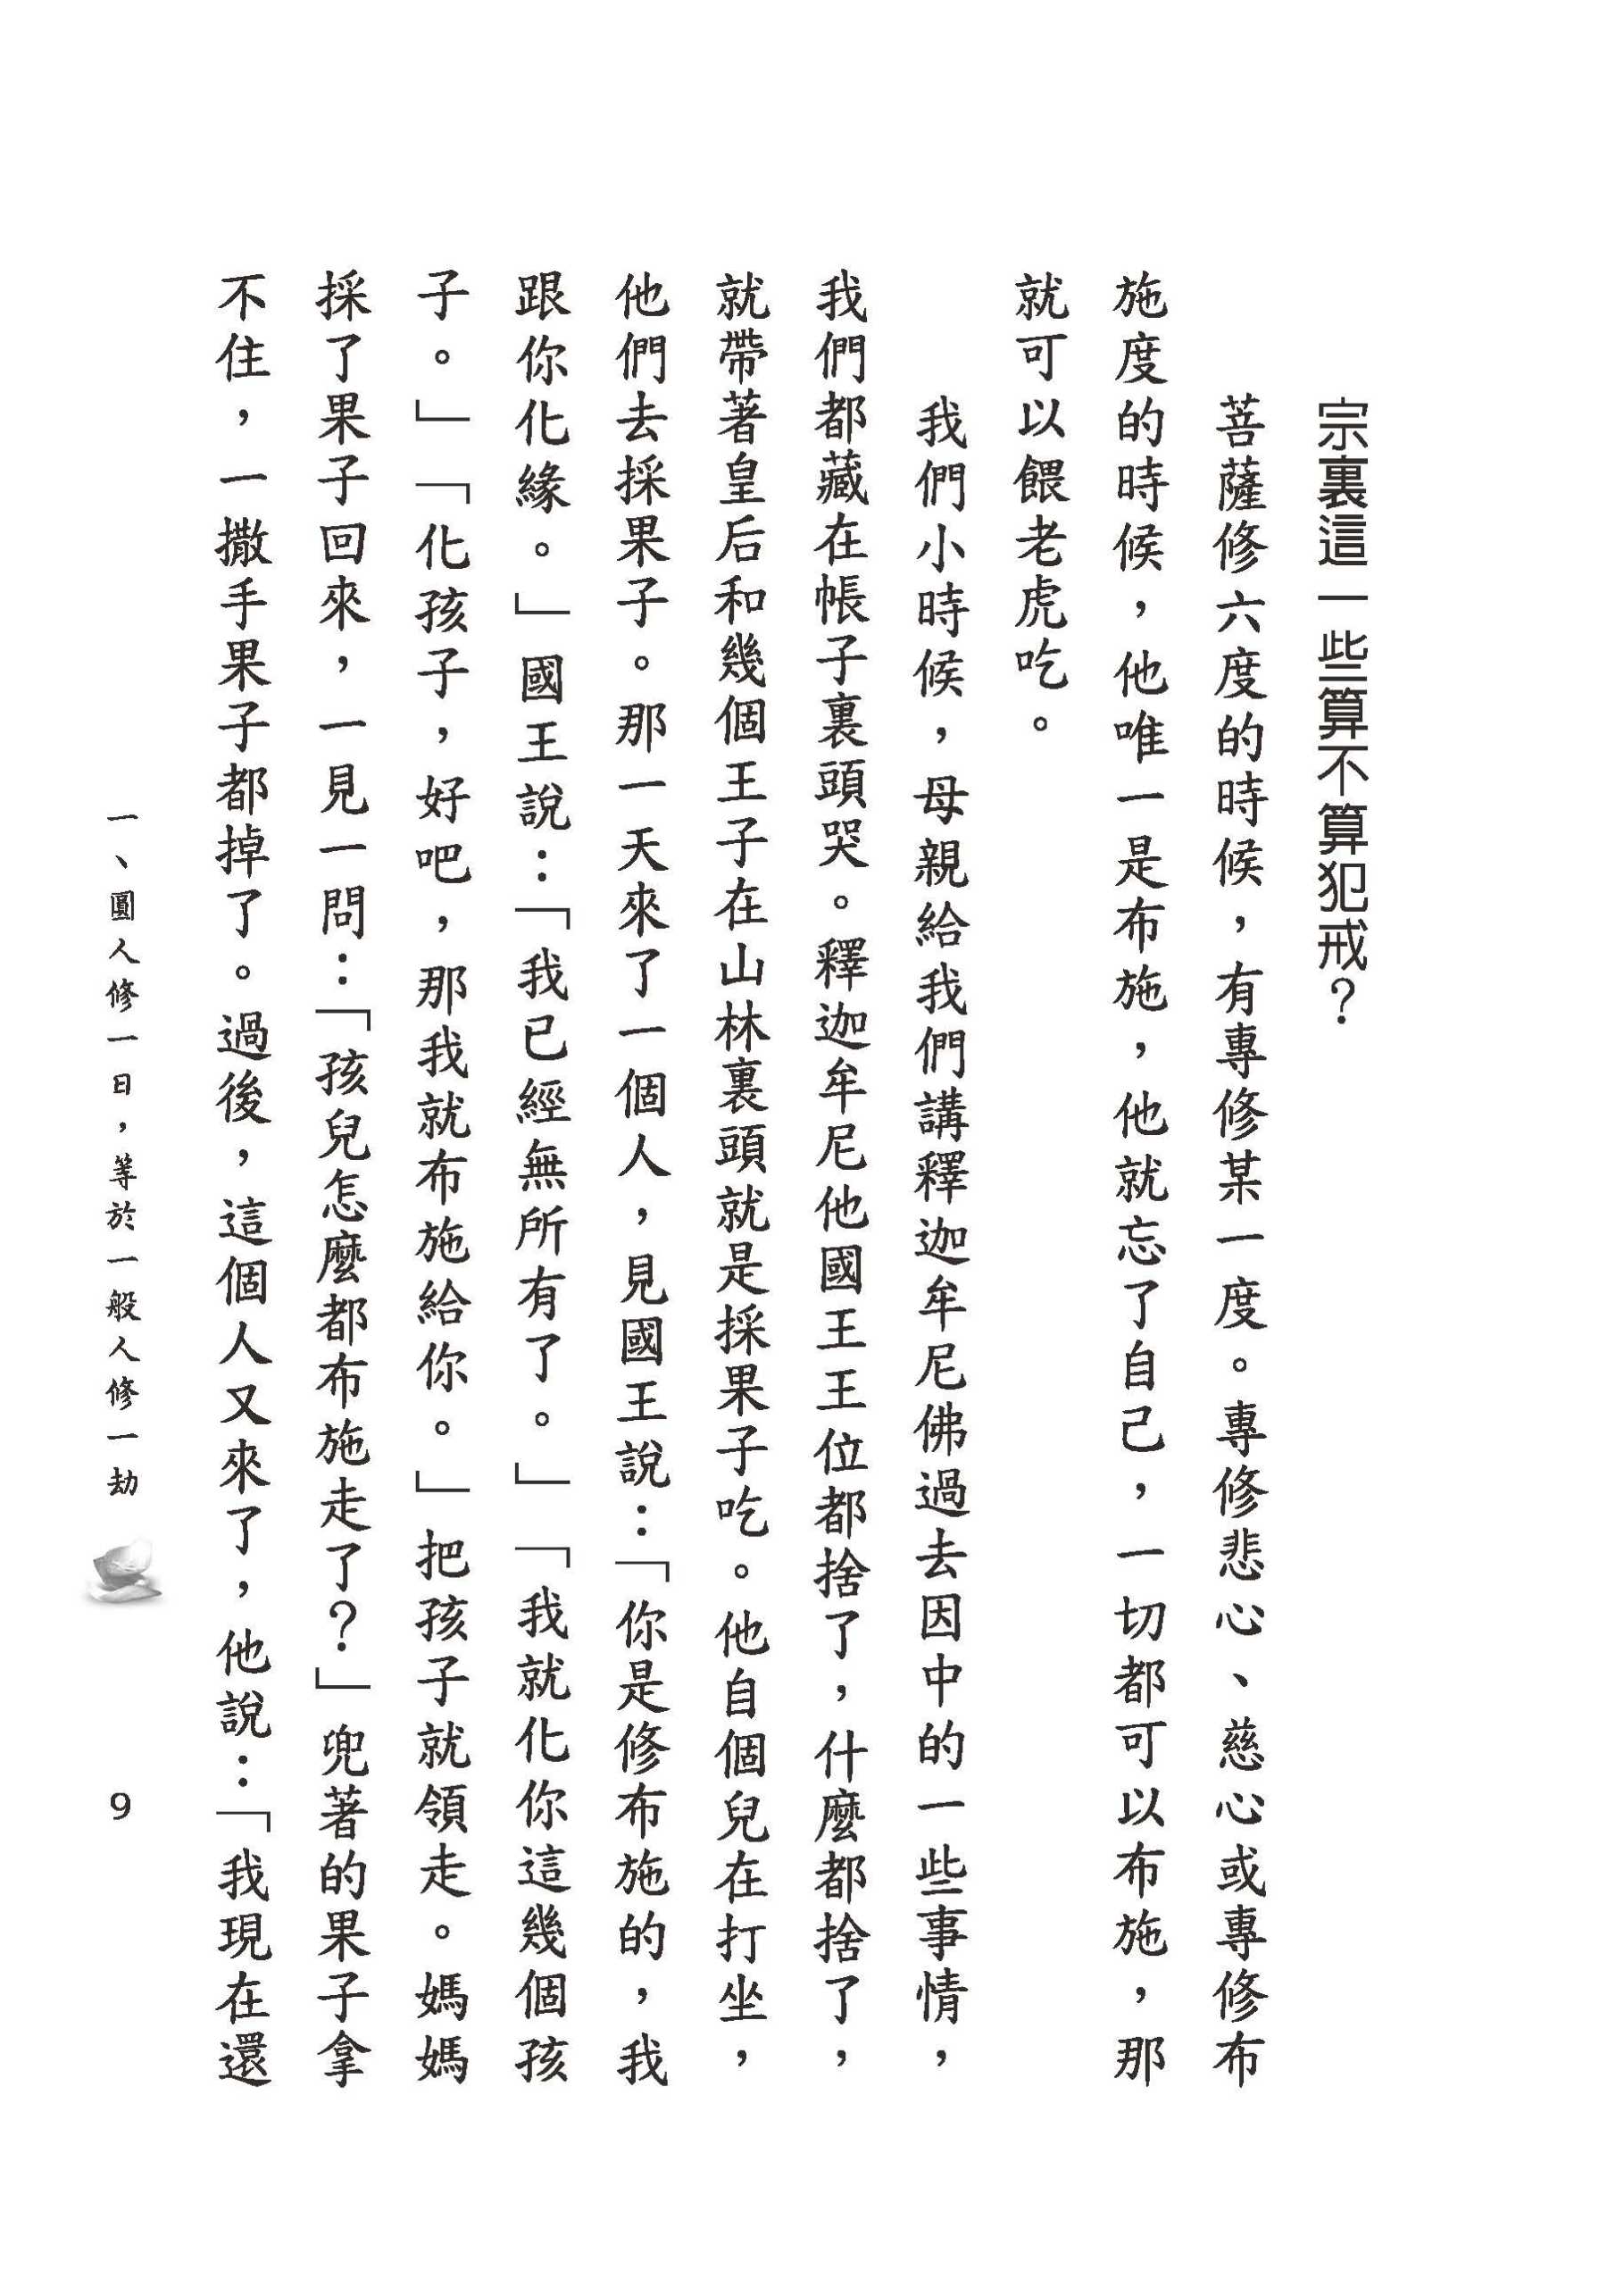 宗裏這一些算不算犯戒？
菩薩修六度的時候，有專修某一度。專修悲心、慈心或專修布
施度的時候，他唯一是布施，他就忘了自己，一切都可以布施，那
就可以餵老虎吃。
我們小時候，母親給我們講釋迦牟尼佛過去因中的一些事情，
我們都藏在帳子裏頭哭。釋迦牟尼他國王王位都捨了，什麼都捨了，
就帶著皇后和幾個王子在山林裏頭就是採果子吃。他自個兒在打坐，
他們去採果子。那一天來了一個人，見國王說：「你是修布施的，我
跟你化緣。」國王說：「我已經無所有了。」「我就化你這幾個孩
子。」「化孩子，好吧，那我就布施給你。」把孩子就領走。媽媽
採了果子回來，一見一問：「孩兒怎麼都布施走了？」兜著的果子拿
不住，一撒手果子都掉了。過後，這個人又來了，他說：「我現在還
一、圓人修一日，等於一般人修一劫
9